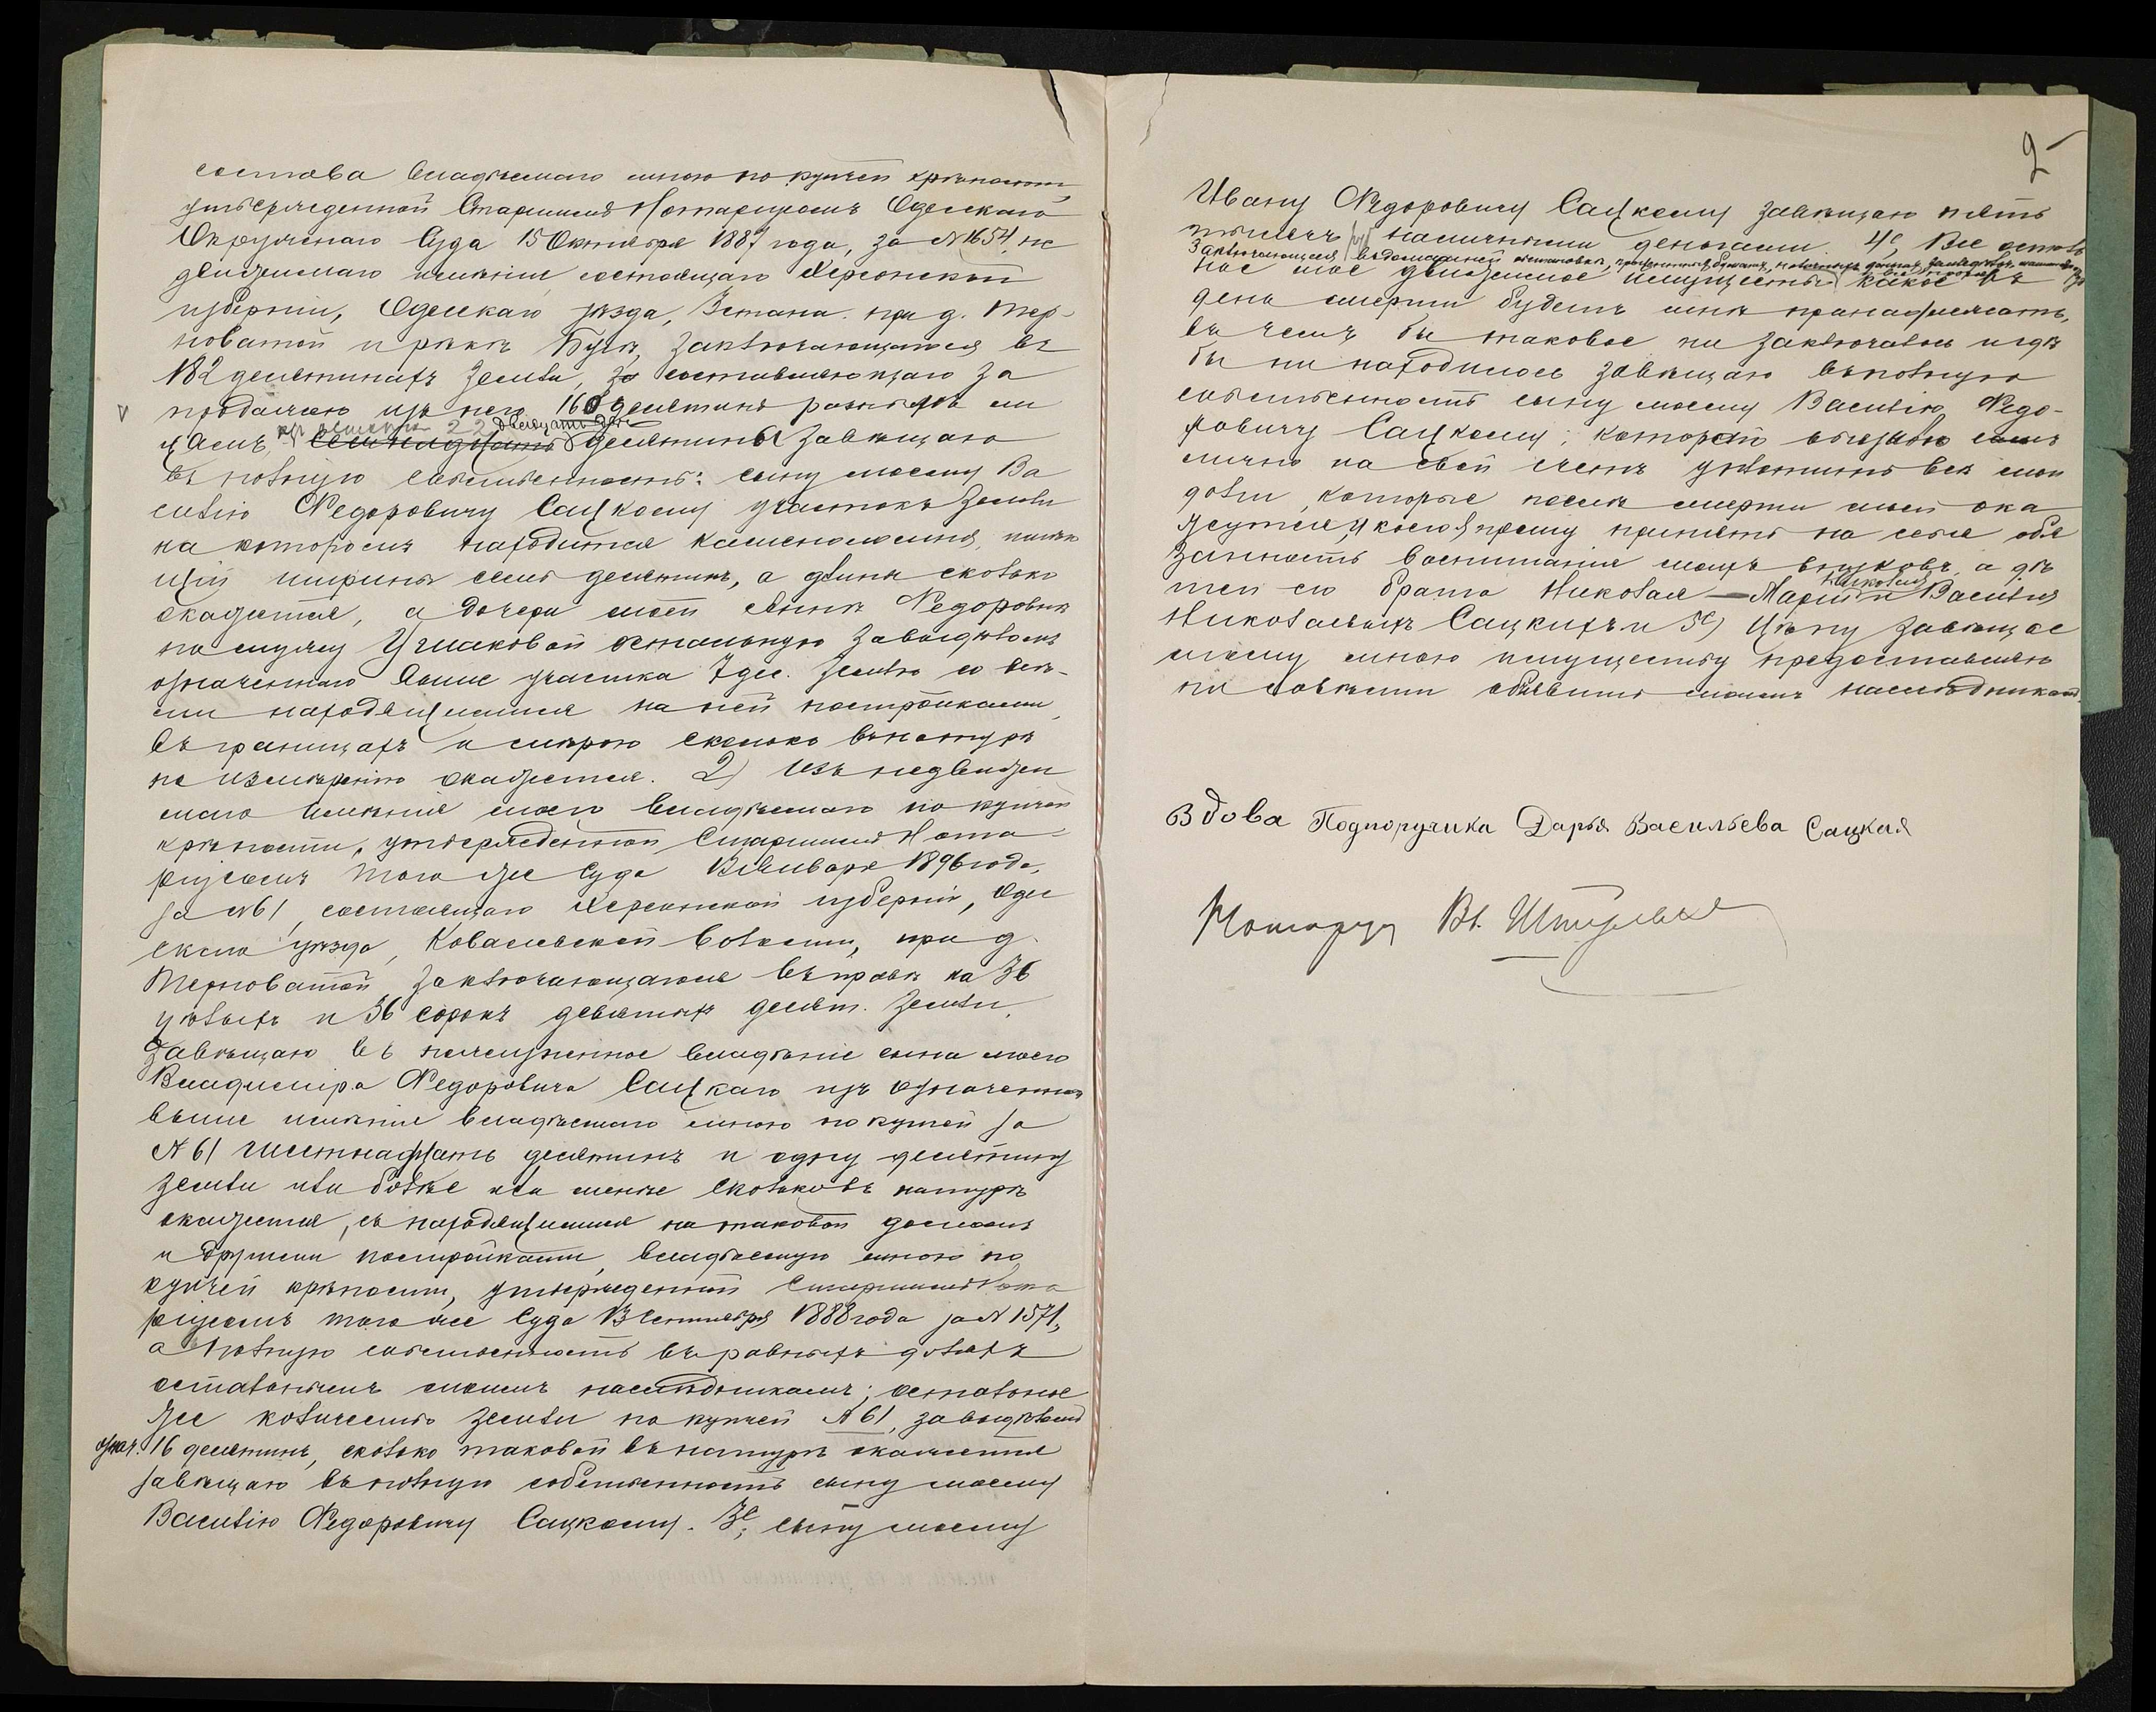 состава владѣемаго мною по купчей крѣпости
утвержденной Старшимъ Нотаріусомъ Одесскаго
Окружнаго Суда 15 Октября 1887 года, за №1654, не
движимаго имѣнія состоящаго Херсонской
губерніи, Одесскаго уѣзда, 3 стана при д. Тер-
новатой и рѣкѣ Бугѣ, заключающагося въ
182 десятинахъ земли, за составляющаго за
продажею изъ него 160 десятинъ разнымъ ли
цамъ, остатка 22 двадцати две
семнадцать десятины завѣщаю
въ полную собственность: сыну моему Ва
силію Федоровичу Сацкому участокъ земли
на которомъ находится каменоломня, имѣю
щій ширины семь десятинъ, а длины сколько
окажется, а дочери моей Аннѣ Федоровнѣ
по мужу Ушаковой остальную за выдѣломъ
означеннаго выше участка 7 дес. землю со всѣ-
ми находящимися на ней постройками,
въ границахъ и мѣрою сколько въ натурѣ
по измѣренію окажется. 2) Изъ недвижи
маго имѣнія моего владѣемаго по купчей
крѣпости, утвержденной Старшимъ Нота
ріусомъ того же Суда 13 Января 1896 года,
за №61, состоящаго Херсонской губерніи, Одес
скаго уѣзда, Ковалевской волости, при д.
Терноватой заключающагося въ правѣ на 36
цѣлыхъ и 36 сорокъ девятыхъ десят. земли,
завѣщаю въ пожизненное владѣніе сына моего
Владиміра Федоровича Сацкаго изъ означеннаго
выше имѣнія владѣемаго мною по купчей за
№ 61 шестнадцать десятинъ и одну десятину
земли или болѣе или менѣе сколько въ натурѣ
окажется, съ находящимися на таковой домомъ
и другими постройками, владѣемую мною по
купчей крѣпости, утвержденной Старшимъ Нота
ріусомъ того же Суда 13 Сентября 1888 года за № 1571,
а полную собственность въ равныхъ доляхъ
остальнымъ моимъ наслѣдникамъ; остальное
же количество земли по купчей № 61, за выдѣломъ
означ. 16 десятинъ, сколько таковой въ натурѣ окажется
завѣщаю въ полную собственность сыну моему
Василію Федоровичу Сацкому. 3е, сыну моему
2
Ивану Федоровичу Сацкому завѣщаю пять
тысячъ наличными деньгами 4е, Все осталь
заключающееся въ домашней обстановкѣ, процентныхъ бумагахъ, наличныхъ деньгахъ
ное мое движимое имущество какое въ
день смерти будетъ мнѣ принадлежать,
въ чемъ бы таковое ни заключалось и гдѣ
бы ни находилось завѣщаю въ полную
собственность сыну моему Василію Федо-
ровичу Сацкому; который обязанъ самъ
лично на свой счетъ уплатить всѣ мои
долги, которые послѣ смерти моей ока
жутся, и коего я прошу принять на себя обя
занность воспитанія моихъ внуковъ, а дѣ
тей его брата Николая — Маріи и Николая Василія
Николаевыхъ Сацкихъ и 5е) Цѣну завѣщае
мому мною имуществу предоставляю
по совѣсти объявить моимъ наслѣдникамъ.
Вдова Подпоручика Дарья Васильева Сацкая
Нотаріусъ Вл.